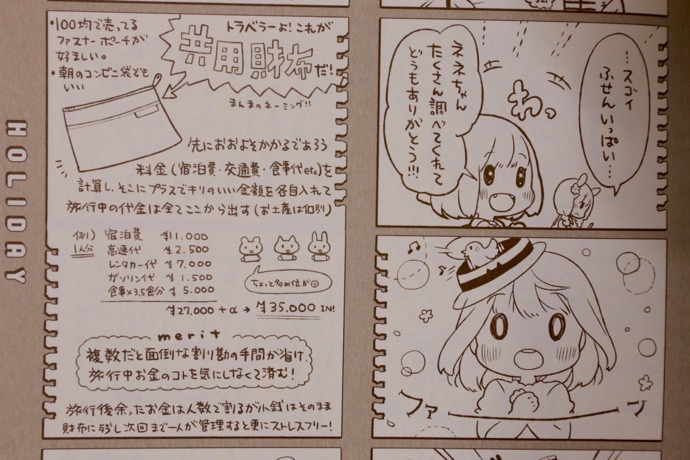 HOLIDAY
・100均で売ってる
ファスナーポーチが
好ましい。
・朝のコンビニ袋でも
いい
トラベラーよ!これが
共用財布だ!
まんまのネーミング!!
先におおよそかかるであろう
料金(宿泊費・交通費・食事代etc)を
計算し、そこにプラスでキリのいい金額を各自入れて
旅行中の代金は全てここから出す(お土産は個別)
例)
1人分
宿泊費 ¥11.000
高速代 ¥2.500
レンタカー代 ¥7.000
ガソリン代 ¥1.500
食事×3.5食分 ¥5.000
¥27.000+α→¥35.000 IN!
ちょっと多め位が◎
merit
複数だと面倒な割り勘の手間が省け
旅行中お金のコトを気にしなくて済む!
旅行後余ったお金は人数で割るが小銭はそのまま
財布に残し次回まで一人が管理すると更にストレスフリー!
…スゴイ
ふせんいっぱい…
わっ
ネネちゃん
たくさん調べてくれて
どうもありがとう!!!
ファーーーッ